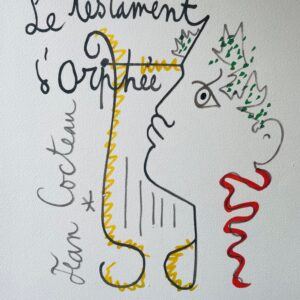 Le testament
d'Orphée
Jean Cocteau *